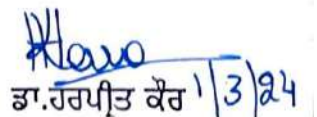 ਡਾ.ਹਰਪੀਤ ਕੌਰ 1/3/24